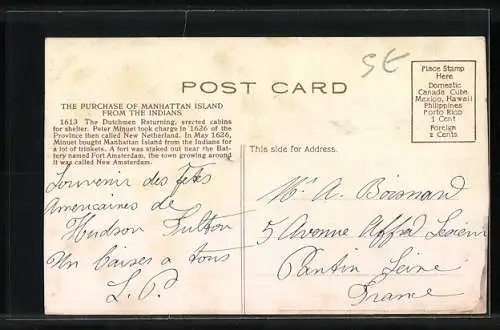 SE
POST CARD
Place Stamp
Here
Domestic
Canada Cuba
Mexico, Hawaii
Philippines
Porto Rico
1 Cent
Foreign
2 Cents
THE PURCHASE OF MANHATTAN ISLAND
FROM THE INDIANS.
1613 The Dutchmen Returning, erected cabins
for shelter. Peter Minuet took charge in 1626 of the
Province then called New Netherland. In May 1626,
Minuet bought Manhattan Island from the Indians for
a lot of trinkets. A fort was staked out near the Bat-
tery named Fort Amsterdam, the town growing around
it was called New Amsterdam.
This side for Address.
Souvenir des fêtes
Americaines de
Hudson Fulton
Un baiser a tous
L. P.
Mr A. Boisnard
5 Avenue Alfred Lesieur
Pantin Seine
France